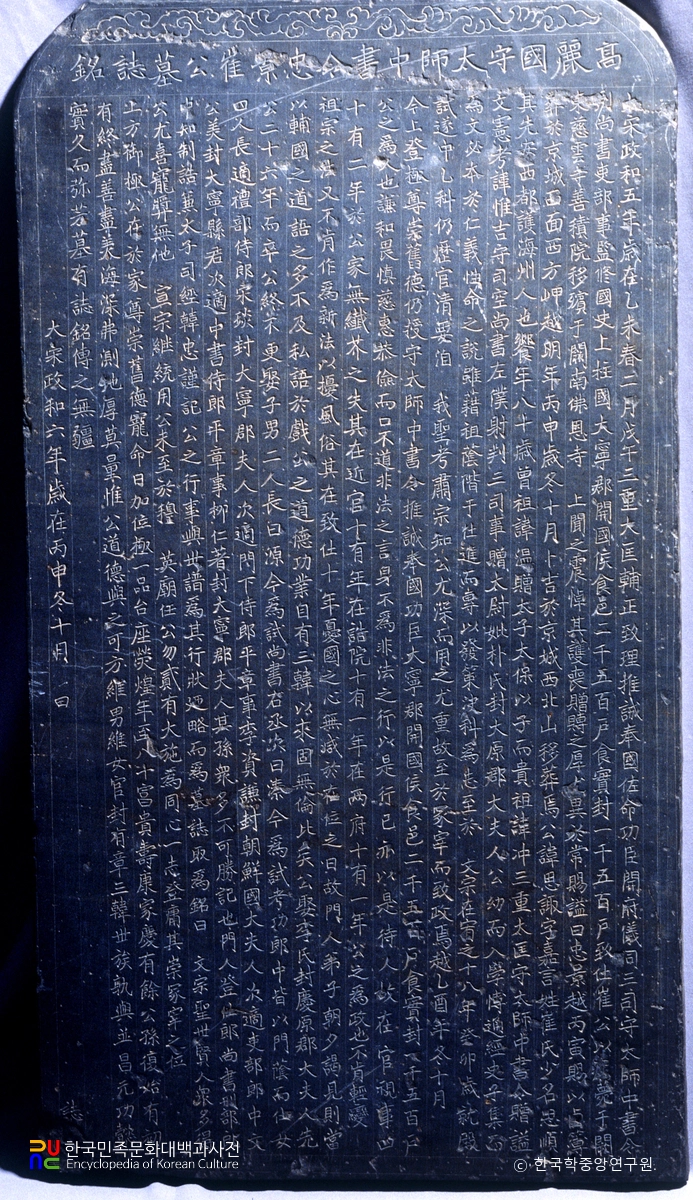 高麗國守太師中書令忠景崔公墓誌銘
宋政和五年歲在乙未春二月戊午三重大匡輔正致理推誠奉國佐命功臣開府儀同三司守太師中書令
尚書吏部事監修國史上柱國大寧郡開國侯食邑二千五百戶食實封一千五百戶致仕崔公以
慈雲寺善積院移殯于闕南崇恩寺 上聞之震悼其護喪賵贈之厚異於常賜謚曰忠景越丙寅
於京城西面西方岬越明年丙申歲冬十月卜吉於京城西北山移葬焉公諱思諏字嘉言姓崔氏少名思順
其先安西都護海州人也饗年八十歲曾祖諱溫贈太子太保以子而貴祖諱冲三重大匡守太師中書令贈謚
文憲考諱惟吉守司空尚書左僕射判三司事贈太尉妣朴氏封大原郡大夫人公幼而入學博通經史子集
為文必本於仁義性命之說雖藉祖蔭階于仕進而專以發策決科為志至於 文宗在宥之十八年癸卯歲就
試遂中乙科仍歷官清要洎 我聖考肅宗知公尤深而用之尤重故至於冢宰而致政焉越乙酉年冬十月
今上登極尊崇舊德仍授守太師中書令推誠奉國功臣大寧郡開國侯食邑二千五百戶食實封一千五百戶
公之為人也謙和畏慎慈惠恭儉而口不道非法之言身不為非法之行以是行己亦以是待人故在官視事四
十有二年於公家無纖芥之失其在近官十有年在誥院十有一年在兩府十有一年公之為政也不肯輕變
祖宗之法又不肯作為新法以擾風俗其在致仕十年憂國之心無減於在位之日故門人弟子朝夕謁見則當
以輔國之道語之多不及私語於戲公之道德功業自有三韓以來固無倫比矣公娶李氏封慶原郡大夫人先
公二十六年而卒公終不更娶子男二人長曰源今為試尚書右丞次曰溱今為試考功郎中皆以門蔭而仕女
四人長適禮部侍郎宋琰封大寧郡夫人次適門下侍郎平章事李資謙封朝鮮國大夫人次適吏部郎中文
公美封大寧縣君次適中書侍郎平章事柳仁著封大寧郡夫人其孫眾多不可勝記也門人登仕郎尚書刑部
知制誥兼太子司經韓忠謹記公之行事與世譜為其行狀迺略而為墓誌取為銘曰 文宗聖世賢人眾多
公尤喜寵騨無他 宣宗繼統用公未至於穆 英廟任公勿貳有大施為同心一志登庸其崇冢宰之位
上方御極公在於家尊崇舊德寵命日加位極一品台座熒煌年至八十富貴壽康家慶有餘公孫復始有
有終盡善盡美海深弗測地厚莫量惟公道德與之可方維男維女官封有章三韓世族孰與並昌元功
實久而弥芳墓有誌銘傳之無疆
大宋政和六年歲在丙申冬十月 日
誌
한국민족문화대백과사전
Encyclopedia of Korean Culture
ⓒ 한국학중앙연구원.